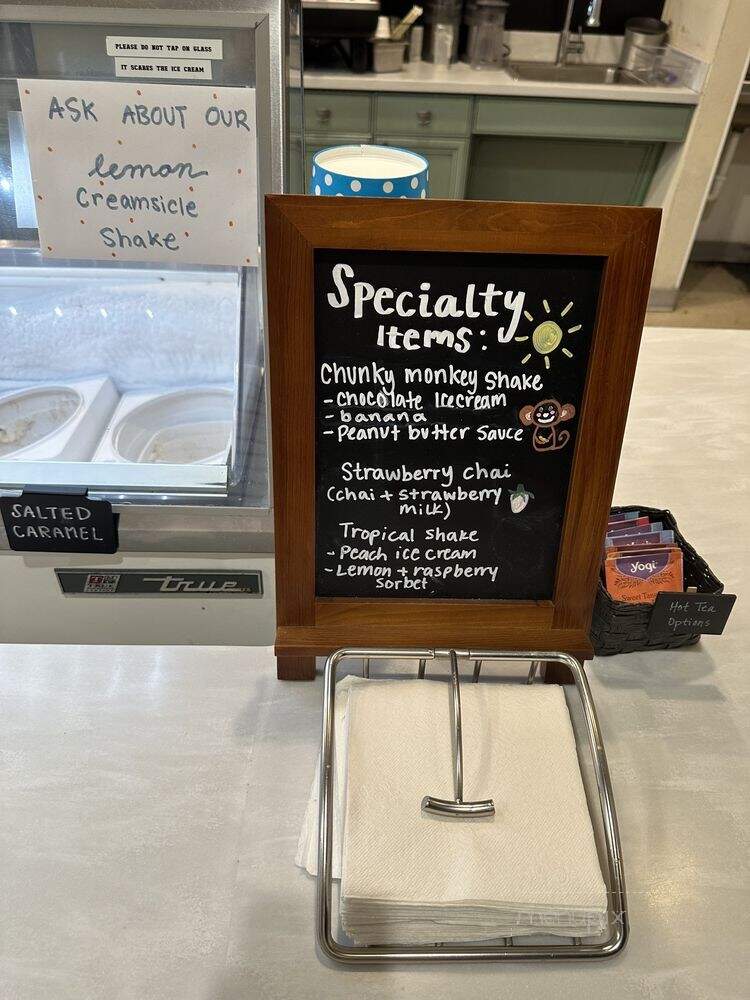 PLEASE DO NOT TAP ON GLASS
IT SCARES THE ICE CREAM
ASK ABOUT OUR
lemon
Creamsicle
Shake
Specialty
Items:
Chunky monkey Shake
- Chocolate Icecream
- banana
- Peanut butter Sauce
Strawberry chai
(chai + strawberry
milk)
Tropical Shake
- Peach ice cream
- Lemon + raspberry
Sorbet
SALTED
CARAMEL
true
yogi
Hot Tea
Options
menupix